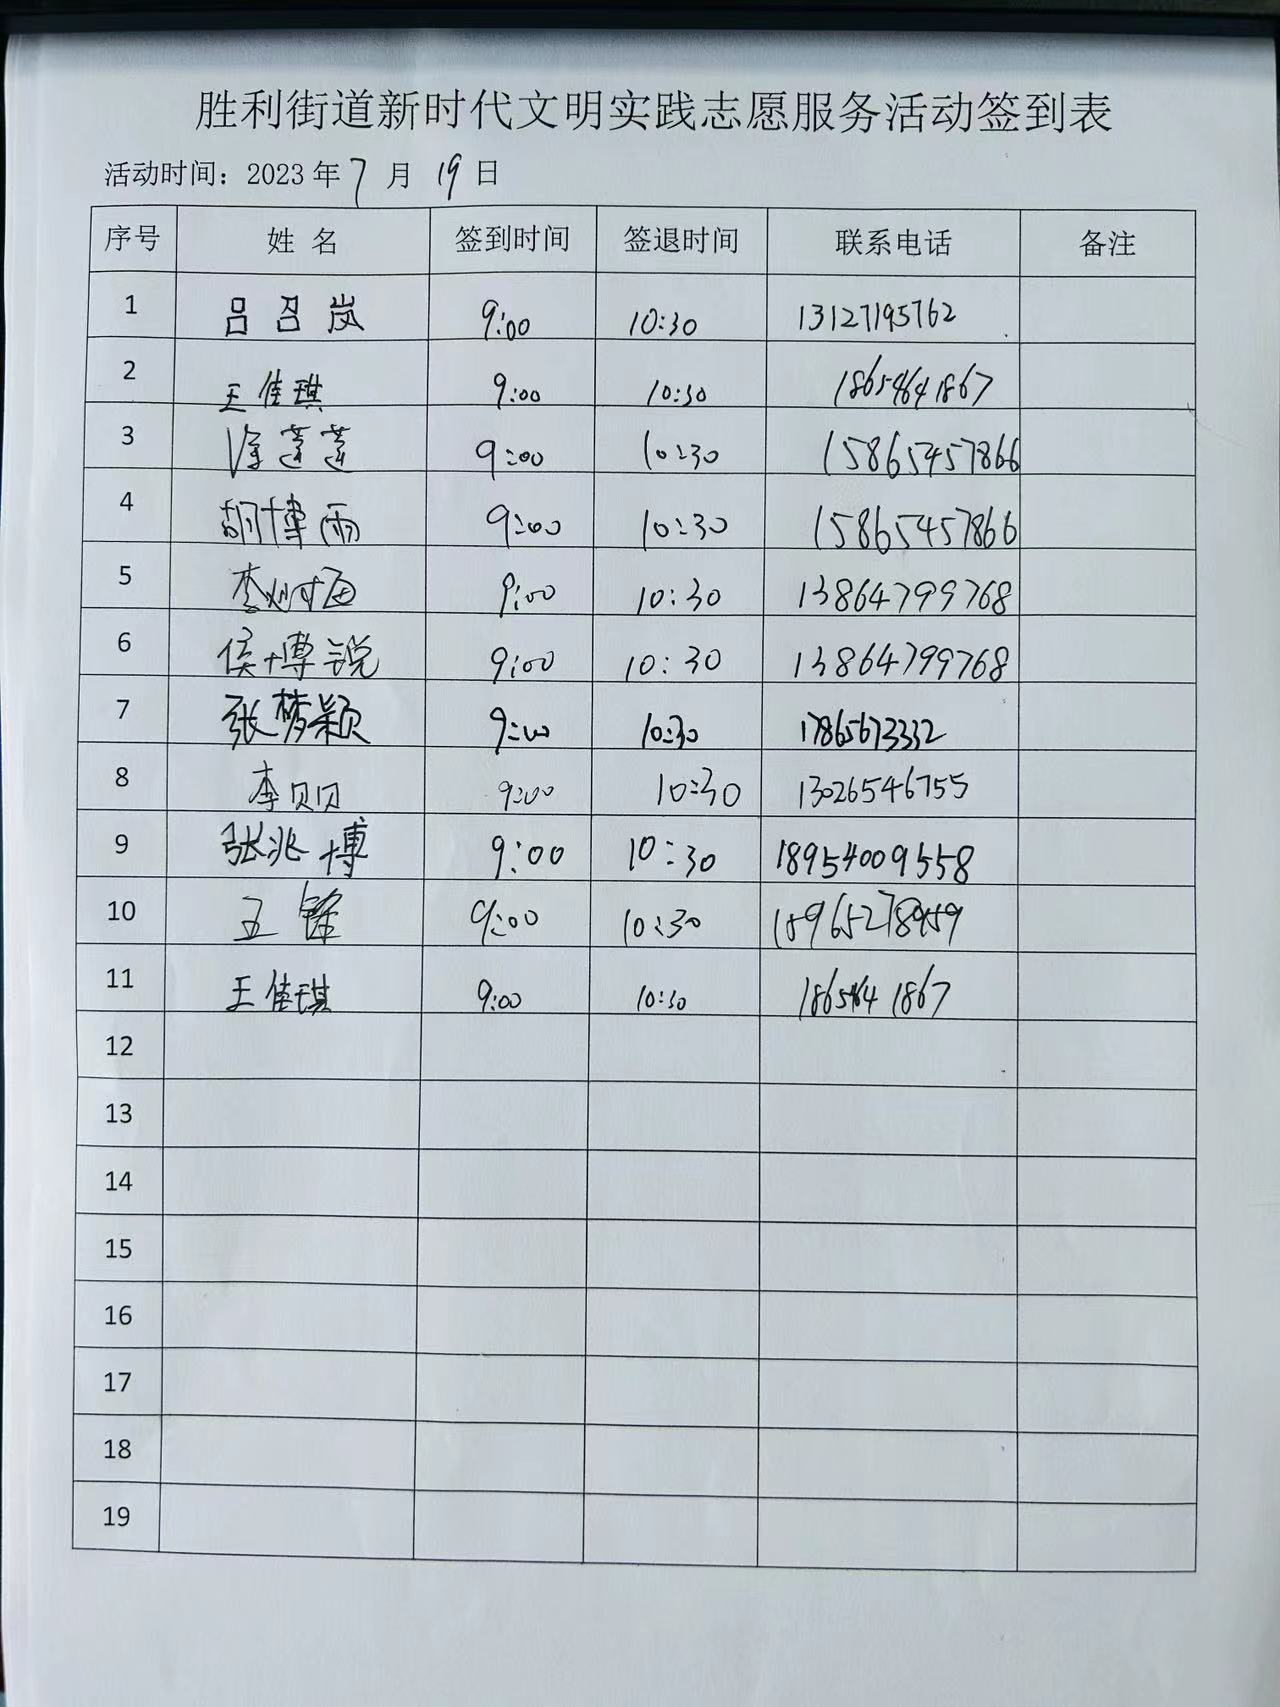 胜利街道新时代文明实践志愿服务活动签到表
活动时间：2023年7月19日
序号 姓名 签到时间 签退时间 联系电话 备注
1 吕召岚 9:00 10:30 13127195762
2 王佳琪 9:00 10:30 18654641867
3 莲莲 9:00 10:30 15865457866
4 胡博雨 9:00 10:30 15865457866
5 李 9:00 10:30 13864799768
6 侯博锐 9:00 10:30 13864799768
7 张梦颖 9:00 10:30 17865673332
8 李贝贝 9:00 10:30 13026546755
9 张兆博 9:00 10:30 18954009558
10 王锋 9:00 10:30 15965278959
11 王佳琪 9:00 10:30 18654641867
12
13
14
15
16
17
18
19